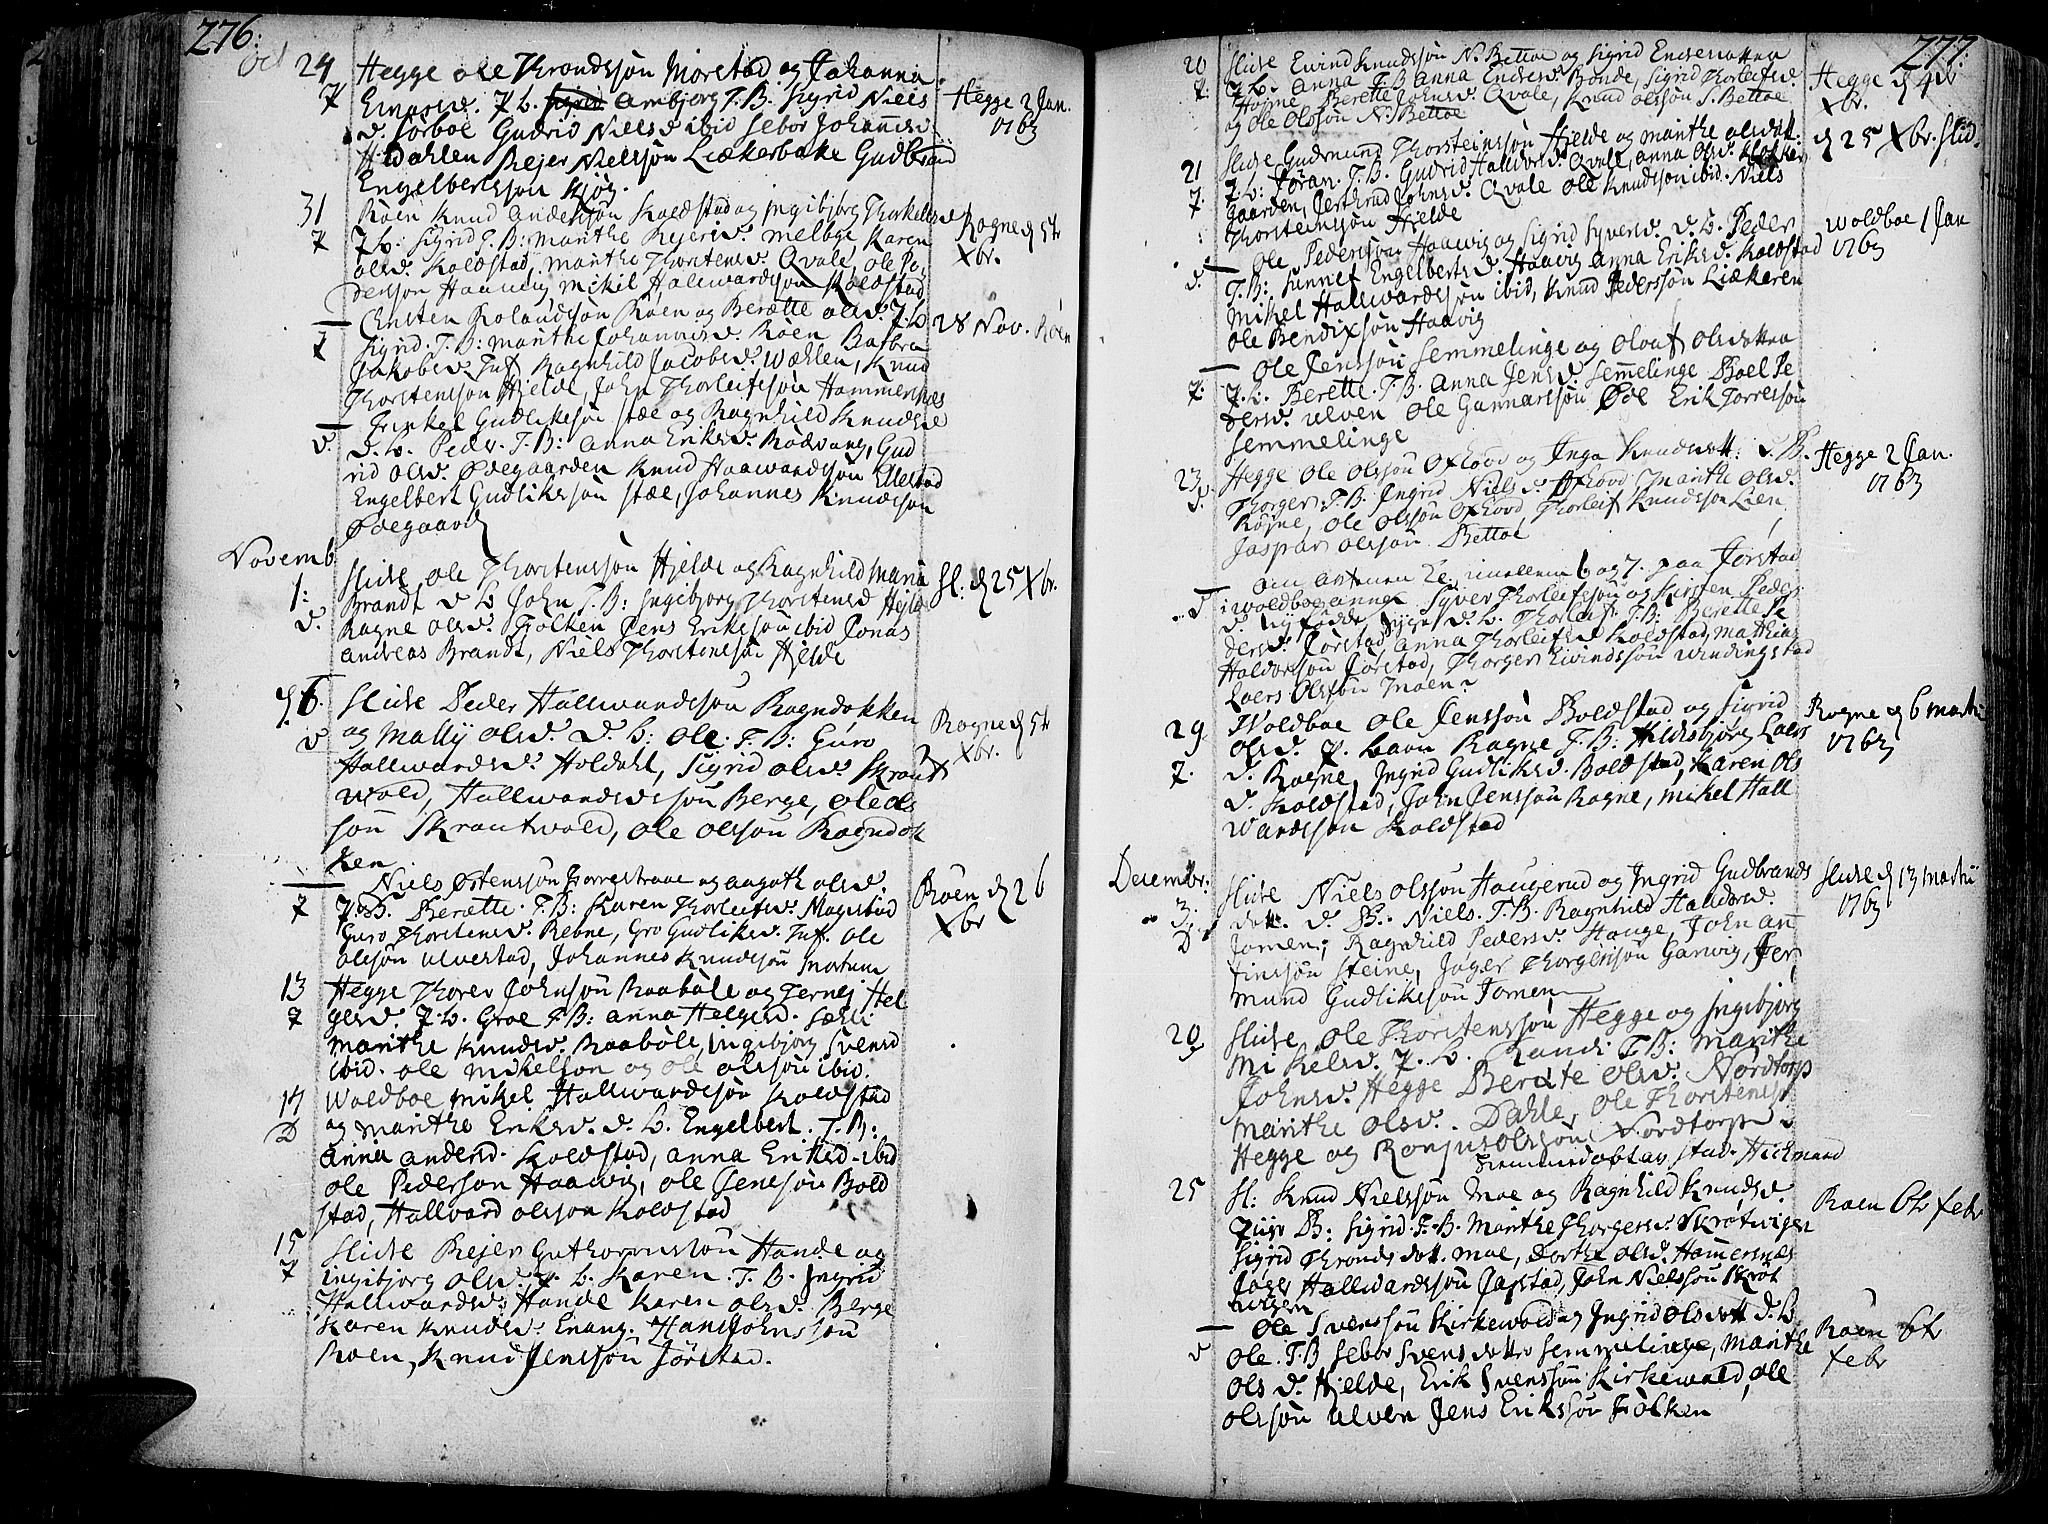 276:
Oct 24 Hegge Ole Throndssøn Morstad og Johanna
7 Einarsd. 7 L. Sigrid Ambjorg T. B. Sigrid Niels
d. Sørboe Gudrid Nielsd ibid Sebor Johannesd.
Hidahlen Rejer Nielssøn Liækerbake Gudbrand
Engelbertssøn Kjøs.
Hegge 2 Jan.
1763
31 Røen Knud Anderssøn Koldstad og Jngibjørg Thorkelsd
7 7 L: Sigrid T. B: Marithe Rejersd. Melbye Karen
Olsd. Koldstad, Marithe Thorstensd. Qvale, Ole Pe
dersøn Haawig Mikel Hallwardssøn Koldstad
Rogne d 5t
Xbr.
— Ensten Rolandssøn Røen og Berætte Olsd. 7. L
7 Sigrid. T. B: Marithe Johannisd. Røen Barbra
Jakobsd. Tuf Ragnhild Jacobsd. Wæhlen, Knud
Thorstenssøn Hjelde, John Thorleifssøn Hammersnes
28 Nov. Røen
— Trinkel Gudlikssøn Stæe og Ragnhild Knudsd
d. D. L. Peder. T. B: Anna Eriksd. Rødvang, Gud
rid Olsd. Ødegaarden Knud Haawardssøn Ellestad
Engelbert Gudlikssøn Stæe, Johannes Knudssøn
Ødegaard
Novemb
1: Slidre Ole Thorstenssøn Hjelde og Ragnhild Maria
d. Brandt d L John T. B: Jngibjorg Thorstensd Hjelde
Ragne Olsd. Folken Jens Erikssøn ibid Jonas
Andreas Brandt, Niels Thorstenssøn Hjelde
Sl: d 25 Xbr.
6. Slidre Peder Hallwardssøn Ragndokken
d og Mally Olsd. D. L: Ole. T. B: Guro
Hallwardsd. Holdahl, Sigrid Olsd. Skraut
wold, Hallwardssøn Berge, Ole Ols
søn Skrautwold, Ole Olssøn Ragndok
ken
Rogne d 5t
Xbr.
— Niels Østenssøn og Aagoth Olsd.
7 7. B. Berætte. T. B: Karen Thorleifsd. Magistad
Guro Thorstensd. Rebne, Gro Gudliksd. Tuf. Ole
Olssøn Ulvestad, Johannes Knudssøn Mortum
Røen d 26
Xbr
13 Hegge Thorer Johnsøn Raabøle og Ternej Hel
7 gesd. 7. L. Groe T. B: Anna Helgesd. Sælli
Marithe Knudsd. Raabøle, Jngibjorg Svensd
ibid. Ole Mikelsøn og Ole Olssøn ibid.
14 Woldboe Mikel Hallwardssøn Koldstad
D og Marithe Eriksd. d. L. Engelbert. T. B:
Anna Andersd. Koldstad, Anna Eriksd. ibid
Ole Pedersøn Haawig, Ole Jenssøn Bold
stad, Hallvard Olssøn Koldstad
15 Slidre Rejer Guthormssøn Hande og
7 Jngibjorg Olsd. 7. L. Karen. T. B. Jngrid
Hallwardsd. Hande Karen Olsd. Berge
Karen Knudsd. Enang. Hans Johnssøn
Roen, Knud Jenssøn Jørstad.
277.
20 Slidre Eivind Knudssøn N. Bettoe og Sigrid Endresdottra
7. 7 L. Anna T. B Anna Endresd. Bonde, Sigrid Thorleifsd.
Hojme Berette Johnsd. Qvale, Knud Olssøn S. Bettoe
og Ole Olssøn N. Bettoe
Hegge d 4de
Xbr.
21 Slidre Gudmund Thorsteinssøn Hjelde og Marithe Olsdott:
7. 7 L: Jøran. T. B. Gudrid Halldorsd. Qvale, Anna Olsd. Klokker
gaarden, Jerthrud Johnsd. Qvale Ole Knudssøn ibid. Niels
Thorsteinssøn Hjelde
d 25 Xbr. Slid.
— Ole Pederssøn Haawig og Sigrid Syversd. D. L. Peder
d. T. B: Sunnef Engelbertsd. Haavig Anna Eriksd. Koldstad
Mikel Hallwardssøn ibid, Knud Pederssøn Liækeren
Ole Bendixsøn Haavig
Woldboe 1 Jan
1763
— Ole Jenssøn Semmelinge og Oloug Olsdottra
7. 7. L. Berette. T. B. Anna Jensd. Semelinge Boel Pe
dersd. Ulven Ole Gunnarssøn Øde Erik Torressøn
Semmelinge
23 Hegge Ole Olssøn Oxhovd og Jnga Knudsdott. D. B.
d. Thorger. T. B Jngrid Nielsd. Oxhovd Marithe Olsd.
Røjne, Ole Olssøn Oxhovd Thorleif Knudssøn Lien
Jaspar Olssøn Bettoe
Hegge 2 Jan.
1763
— om Aftenen Kl. imellem 6 og 7. paa Jørstad
D i Woldboe annex Syver Thorleifssøn og Kirsten Peders
d. Nyfødde D. L. Thorleif. T. B: Berette Pe
dersd. Jørstad, Anna Thorleifsd Koldstad, Mathias
Haldorssøn Jørstad, Thorger Eivindssøn Windingstad
Laers Olssøn Moen.
29 Woldboe Ole Jenssøn Boldstad og Sigrid
7. Olsd. 7. Barn Ragne T. B: Hildsbjørg Laers
d. Rogne, Jngrid Gudliksd. Boldstad, Karen Ols
d. Koldstad, John Jenssøn Rogne, Mikel Hall
wardssøn Koldstad
Rogne d 6 Martii
1763
Decembr.
3. Slidre Niels Olssøn Haugerud og Jngrid Gudbrands
D dott. D. B. Niels. T. B. Ragnhild Haldorsd.
Jomen, Ragnhild Pedersd. Hauge, John An
finssøn Steine, Jøger Thorgerssøn Garwig, Jer
mund Gudlikssøn Jomen
Slidre d 13 Martii
1763
20 Slidre Ole Thorstenssøn Hegge og Jngibjorg
7 Mikelsd. 7. L. Randi T. B: Marithe
Johnsd. Hegge Berette Olsd. Nordtorp
Marithe Olsd. Dahle, Ole Thorstenss
Hegge og Ronjus Olssøn Nordtorp
25 Sl: Knud Nielssøn Moe og Ragnhild Knudsd.
B: Sigrid. T. B. Marithe Thorgersd. Skrøtwigen
Sigrid Thronds dott. Moe, Dorthe Olsd. Hamersnæs
Jøger Hallwardssøn Jarstad, John Nielssøn Skrøt
wigen
Roen 6t Febr
— Ole Svenssøn Kirkewold og Jngrid Olsdott D. B
d Ole. T. B Sebor Svensdottr Semmelinge, Marithe
Ols d. Hjelde, Erik Svenssøn Kirkewold, Ole
Olssøn Ulven Jens Erikssøn Folken
Roen 6t
Febr